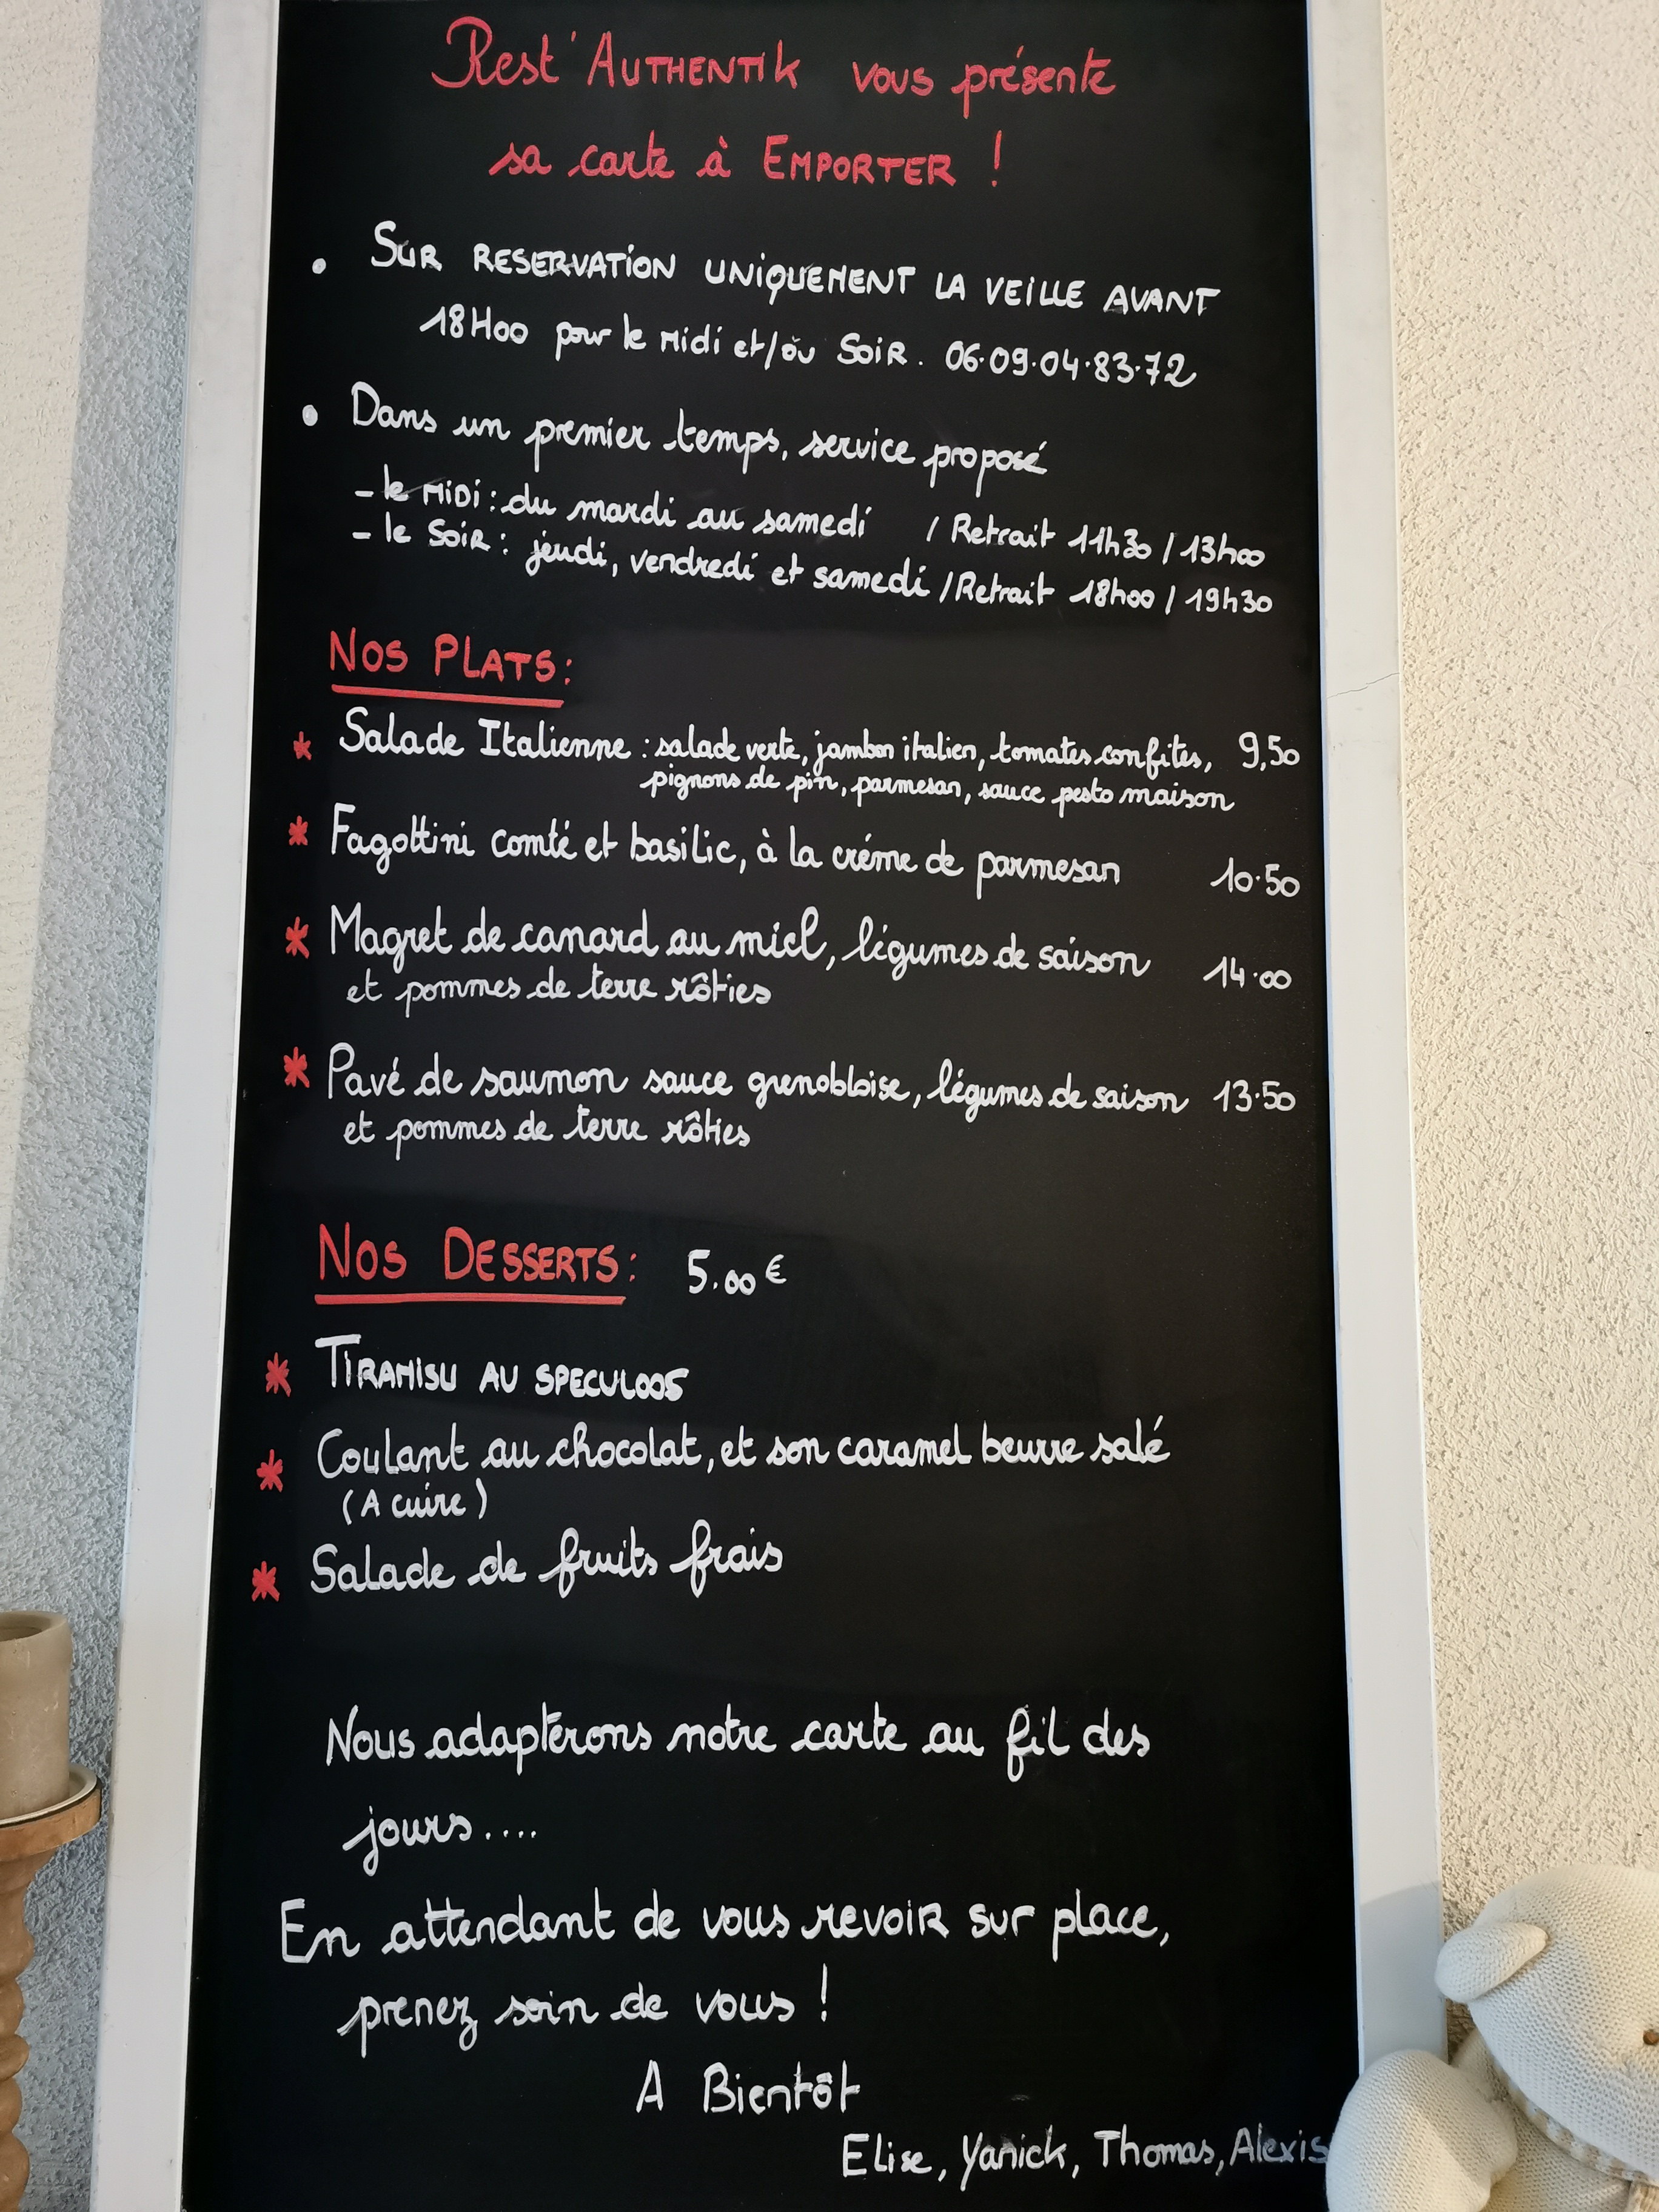 Rest'AUTHENTIK vous présente
sa carte à EMPORTER !
• SUR RESERVATION UNIQUEMENT LA VEILLE AVANT
18H00 pour le Midi et/ou SOIR. 06.09.04.83.72
• Dans un premier temps, service proposé
- le MIDI : du mardi au samedi / Retrait 11h30 / 13h00
- le SOIR : jeudi, vendredi et samedi / Retrait 18h00 / 19h30
NOS PLATS :
* Salade Italienne : salade verte, jambon italien, tomates confites, 9,50
pignons de pin, parmesan, sauce pesto maison
* Fagottini comté et basilic, à la créme de parmesan 10.50
* Magret de canard au miel, légumes de saison 14.00
et pommes de terre rôties
* Pavé de saumon sauce grenobloise, légumes de saison 13.50
et pommes de terre rôties
NOS DESSERTS : 5.00 €
* TIRAMISU AU SPECULOOS
* Coulant au chocolat, et son caramel beurre salé
(A cuire)
* Salade de fruits frais
Nous adapterons notre carte au fil des
jours....
En attendant de vous revoir sur place,
prenez soin de vous !
A Bientôt
Elise, Yanick, Thomas, Alexis